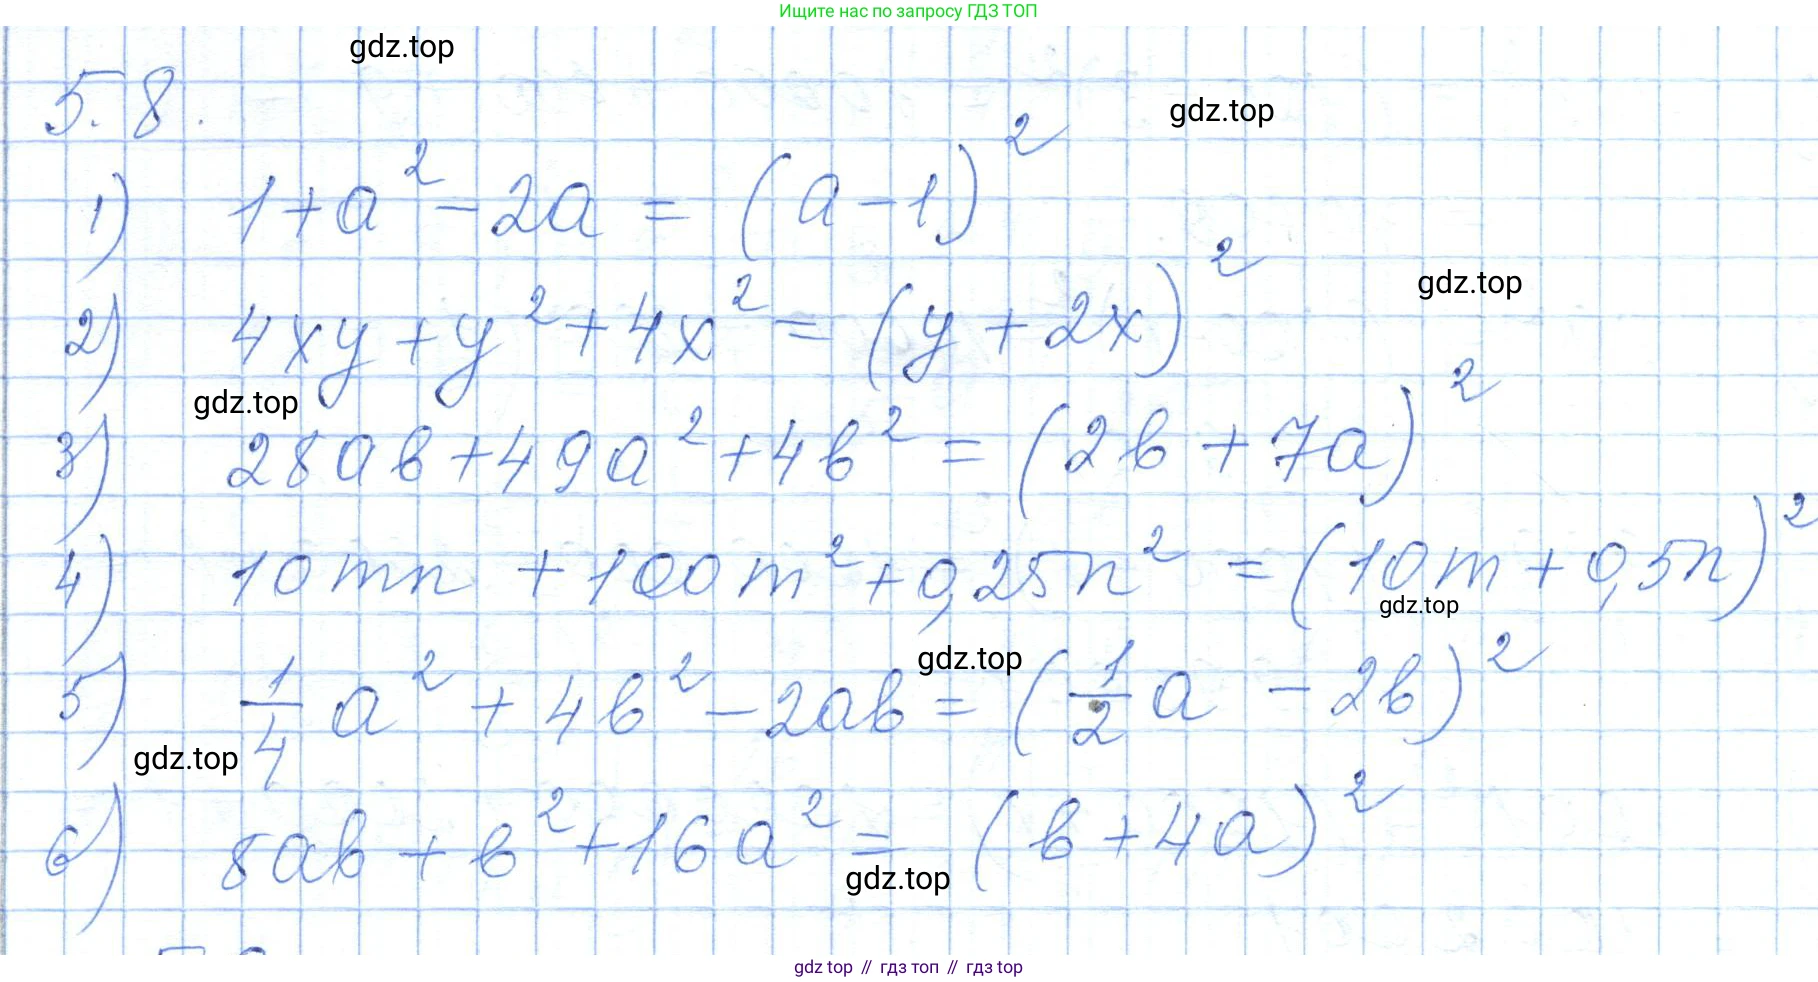 Ищите нас по запросу ГДЗ ТОП
gdz.top
5.8.
gdz.top
1) 1+a²-2a = (a-1)²
gdz.top
2) 4xy+y²+4x² = (y+2x)²
gdz.top
3) 28ab+49a²+4b² = (2b+7a)²
4) 10mn +100m²+0,25n² = (10m+0,5n)²
gdz.top
gdz.top
5) 1/4 a² + 4b² - 2ab = (1/2 a - 2b)²
gdz.top
6) 8ab + b² + 16a² = (b+4a)²
gdz.top
gdz top // гдз топ // гдз top